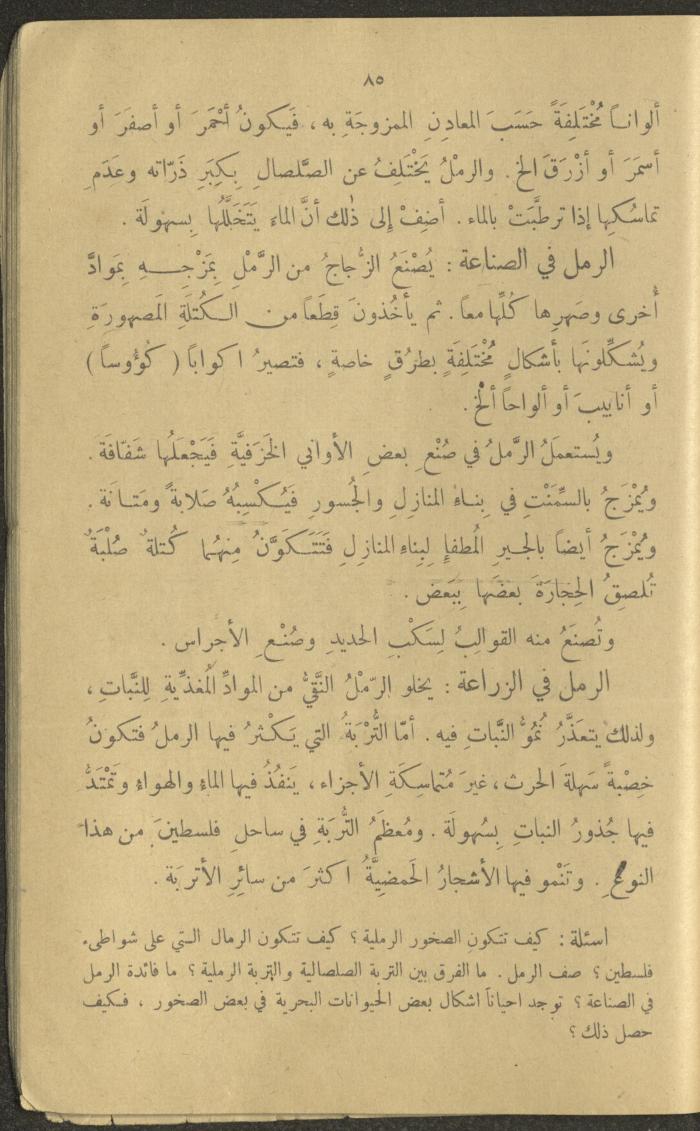 ٨٥
ألواناً مُخْتَلِفَةً حَسَبَ المعادِنِ الممزوجَةِ به ، فَيكونُ أحْمَرَ أو أصفَرَ أو
أسمَرَ أو أزْرَقَ الخ . والرملُ يَخْتَلِفُ عن الصَّلصالِ بِكِبَرِ ذَرّاته وعَدَمِ
تماسُكِها إذا ترطَّبَتْ بالماء . أضِفْ إلى ذٰلك أنَّ الماءَ يَتَخَلَّلُها بِسهولَة .
الرمل في الصناعة : يُصْنَعُ الزُّجاجُ من الرَّمْلِ بِمَزْجِهِ بِمَوادَّ
أُخرى وصَهرِها كُلِّها معاً . ثم يأخُذونَ قِطَعاً من الكُتلَةِ المَصهورَةِ
ويُشكِّلونَها بأشكالٍ مُخْتَلِفَةٍ بطرُقٍ خاصةٍ ، فتصيرُ اكواباً ( كُؤُوساً )
أو أنابيبَ أو ألواحاً ألخ .
ويُستعمَلُ الرَّملُ في صُنْعِ بعضِ الأواني الخَزَفيَّةِ فَيَجْعَلُها شَفّافَة .
ويُمْزَجُ بالسِّمَنْتِ في بِناءِ المنازِلِ والجُسورِ فَيُكْسِبُهُ صَلابةً ومَتانَة .
ويُمْزَجُ أيضاً بالجيرِ المُطفإِ لِبِناءِ المنازِلِ فَتَتَكَوَّنُ مِنهُما كُتلةٌ صُلْبَةٌ
تُلصِقُ الحِجارَةَ بعضَها بِبَعض .
وتُصنَعُ منه القوالبُ لِسَكْبِ الحديدِ وصُنْعِ الأجراس .
الرمل في الزراعة : يخلو الرّمْلُ النَّقِيُّ من الموادِّ المُغذِّيةِ لِلنَّباتِ ،
ولذلك يتعَذَّرُ نُمُوُّ النَّباتِ فيه . أمّا التُّرْبَةُ التي يَكْثرُ فيها الرملُ فتكونُ
خِصْبةً سَهلةَ الحرث ، غيرَ مُتماسِكَةِ الأجزاء ، يَنفُذُ فيها الماءُ والهواءُ وتَمْتَدُّ
فيها جُذورُ النباتِ بِسُهولَة . ومُعظَمُ التُّربَةِ في ساحلِ فلسطينَ من هذا
النوعِ . وتَنْمو فيها الأشجارُ الحَمضِيَّةُ اكثرَ من سائِرِ الأتربَة .
اسئلة : كيف تتكون الصخور الرملية ؟ كيف تتكون الرمال التي على شواطىء
فلسطين ؟ صف الرمل . ما الفرق بين التربة الصلصالية والتربة الرملية ؟ ما فائدة الرمل
في الصناعة ؟ توجد احياناً اشكال بعض الحيوانات البحرية في بعض الصخور ، فكيف
حصل ذلك ؟